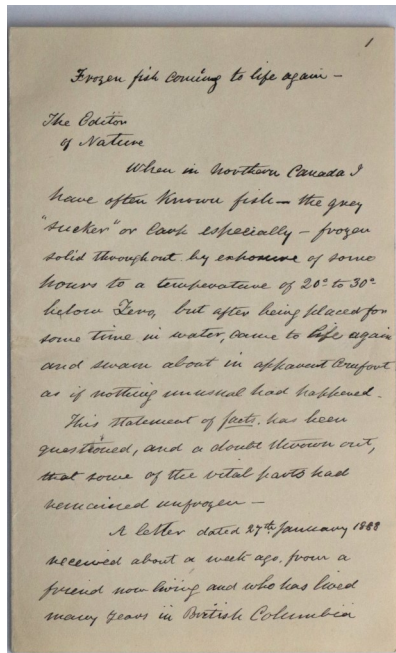 1
Frozen fish coming to life again -
The Editor
of Nature
When in Northern Canada I
have often known fish - the grey
"sucker" or Carp especially - frozen
solid throughout by exposure of some
hours to a temperature of 20° to 30°
below Zero, but after being placed for
some time in water, came to life again
and swam about in apparent Comfort
as if nothing unusual had happened.
This statement of facts, has been
questioned, and a doubt thrown out,
that some of the vital parts had
remained unfrozen -
A letter dated 27th January 1888
received about a week ago, from a
friend now living and who has lived
many years in British Columbia